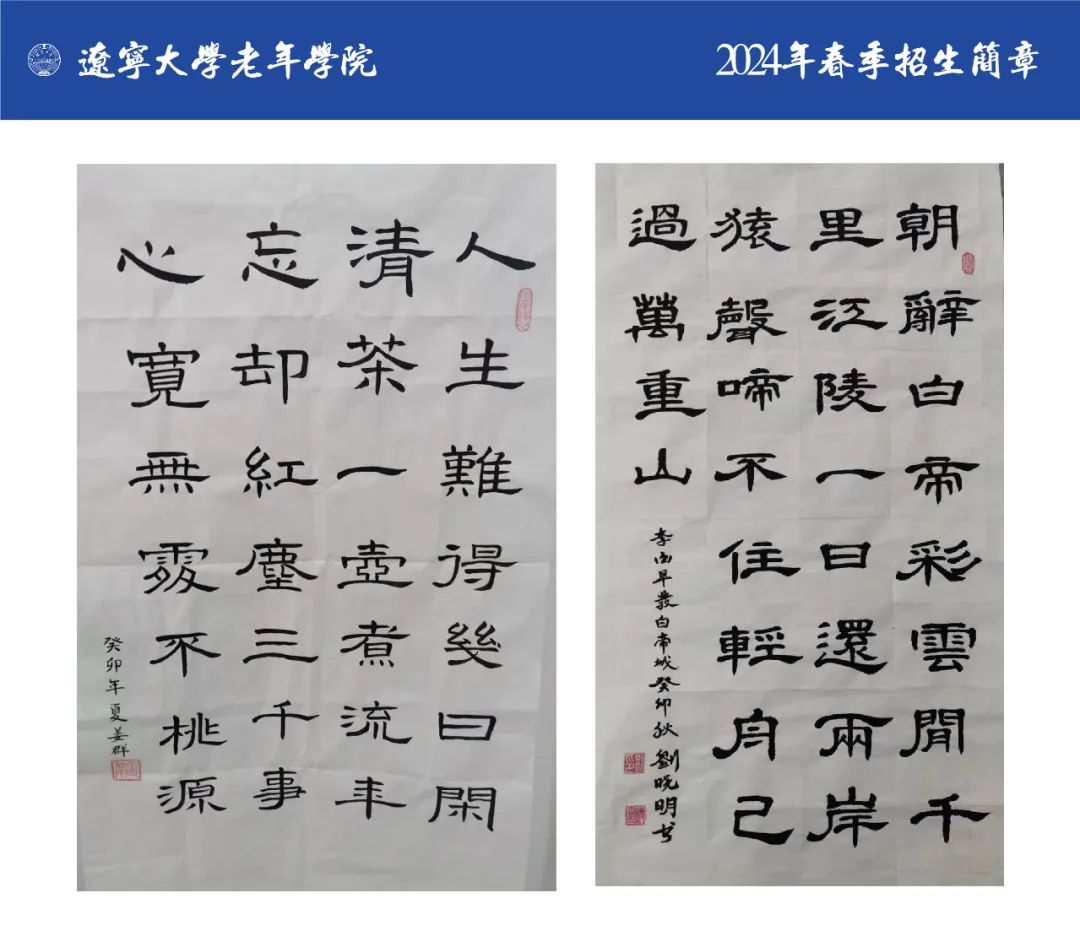 遼寧大學老年學院
2024年春季招生簡章
人生難得幾日閑
清茶一壺煮流年
忘却紅塵三千事
心寬無處不桃源
癸卯年夏姜群
朝辭白帝彩雲間千
里江陵一日還兩岸
猿聲啼不住輕舟已
過萬重山
李白早發白帝城癸卯秋劉晓明书